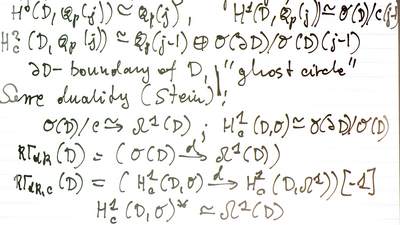 H⁰(D, ℚₚ(j)) ≃ ℚₚ(j), H¹(D, ℚₚ(j)) ≃ 𝒪(D)/C(j-1)
H²_c(D, ℚₚ(j)) ≃ ℚₚ(j-1) ⊕ 𝒪(∂D)/𝒪(D)(j-1)
∂D - boundary of D, "ghost circle"
Serre duality (Stein):
𝒪(D)/C ≃ Ω¹(D) ; H¹_c(D,𝒪) ≃ 𝒪(∂D)/𝒪(D)
RΓ_dR(D) = (𝒪(D) →d Ω¹(D))
RΓ_dR,c(D) = (H¹_c(D,𝒪) →d H¹_c(D,Ω¹))[-1]
H¹_c(D,𝒪)* ≃ Ω¹(D)